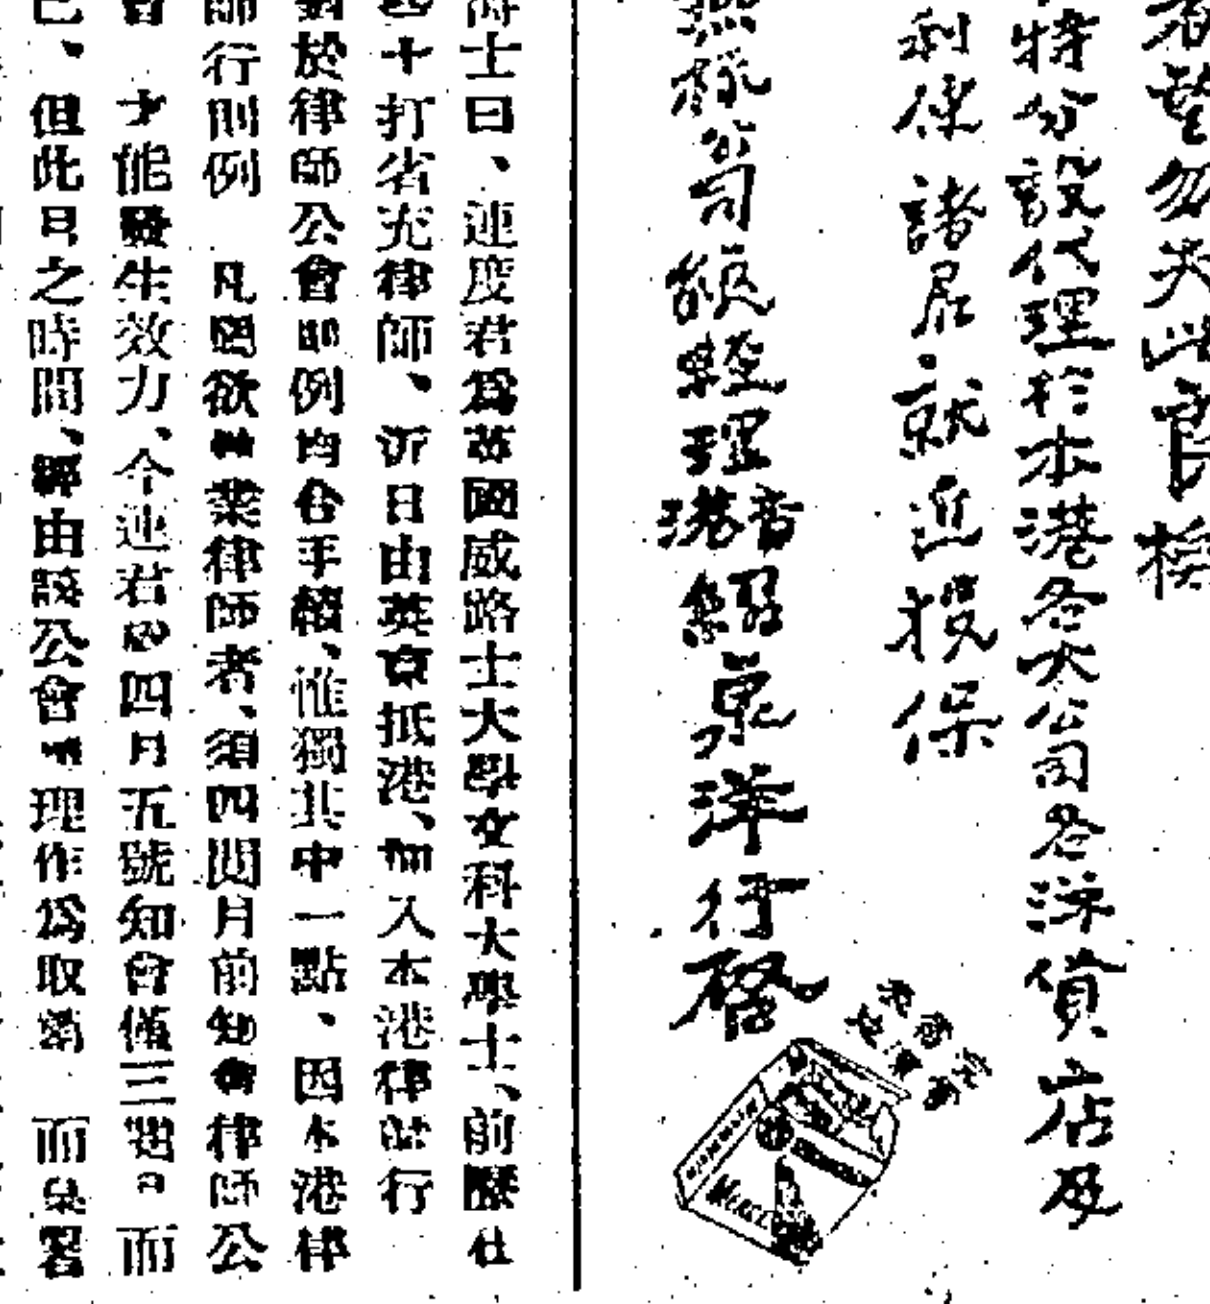 君望勿失此良機
特分設代理於本港各大公司各洋貨店及
利保諸君就近投保
燕梳公司總經理
香港紹泉洋行啓
士曰、連度君為英國威路士大學文科大學士、前歷仕
十打省充律師、近日由英京抵港、加入本港律師行
於律師公會則例均合手續、惟獨其中一點、因本港律
師行則例 凡為欲執業律師者、須四閱月前知會律師公
會 才能發生效力、今連君於四月五號知會僅三週日而
已、但此月之時間、經由該公會辦理作為取消 而臬署